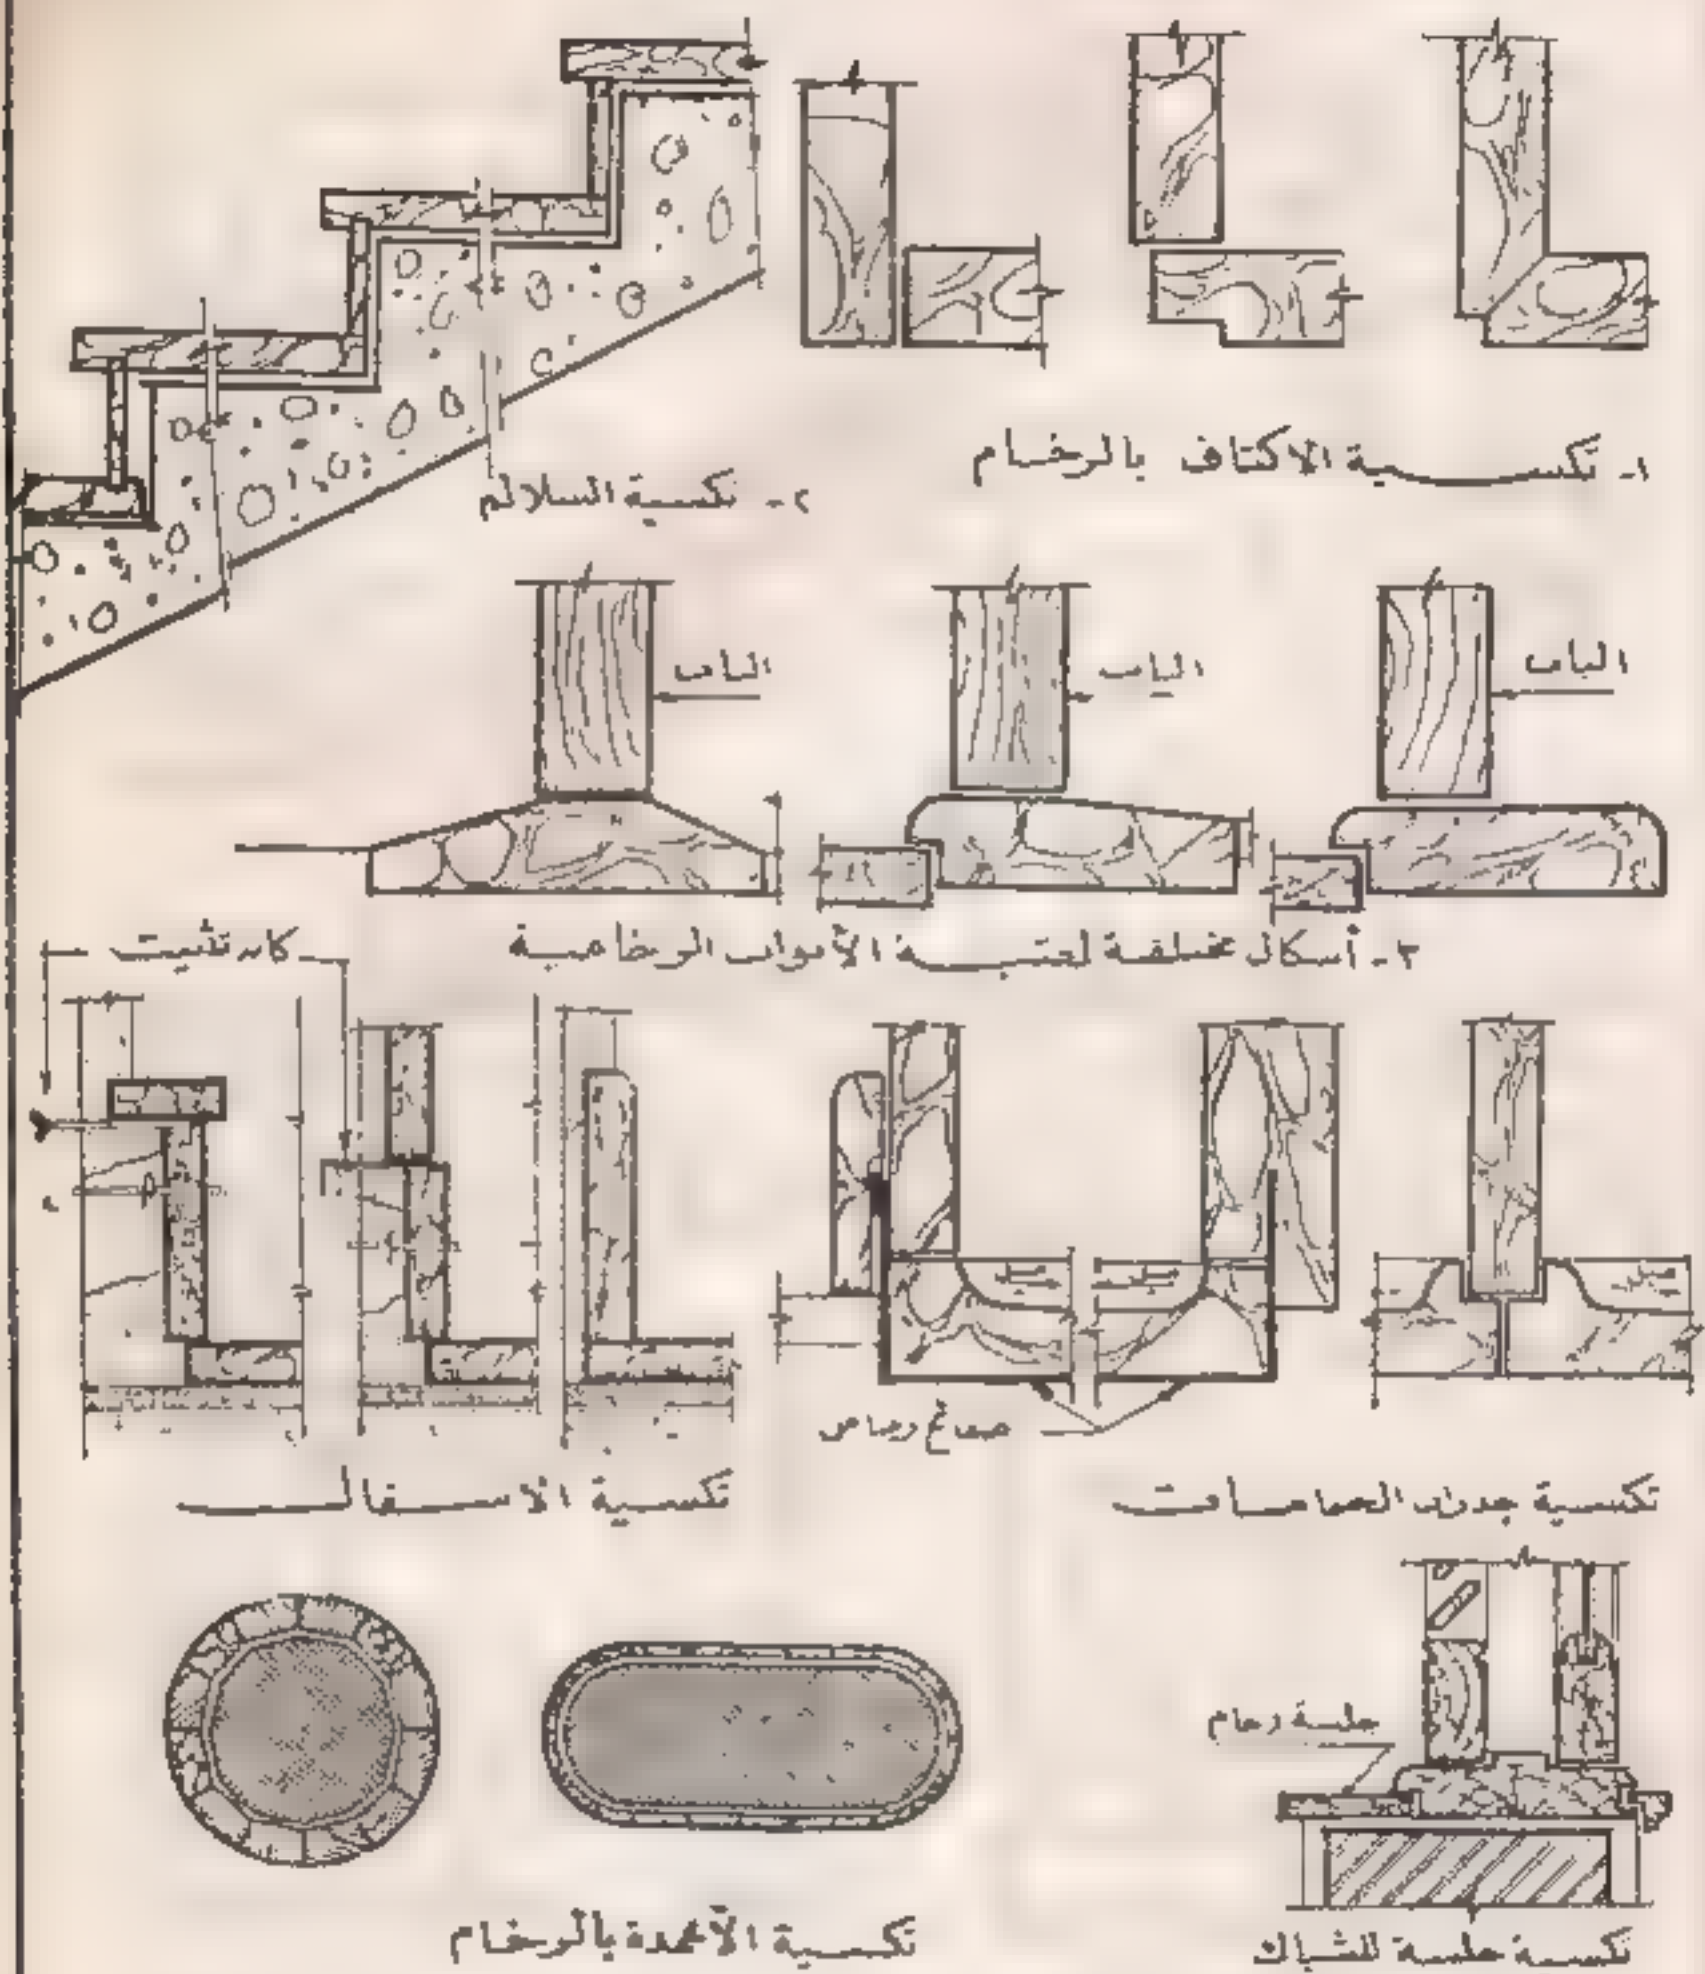 ١- تكسية الاكتاف بالرخام
٢- تكسية السلالم
الباب
الباب
الباب
٣- أشكال مختلفة لعتبة الأبواب الرخامية
كانه تثبيت
صفائح رصاص
تكسية جدران الحمامات
تكسية الاسفال
جلسة رخام
تكسية الأعمدة بالرخام
تكسية جلسة للشباك